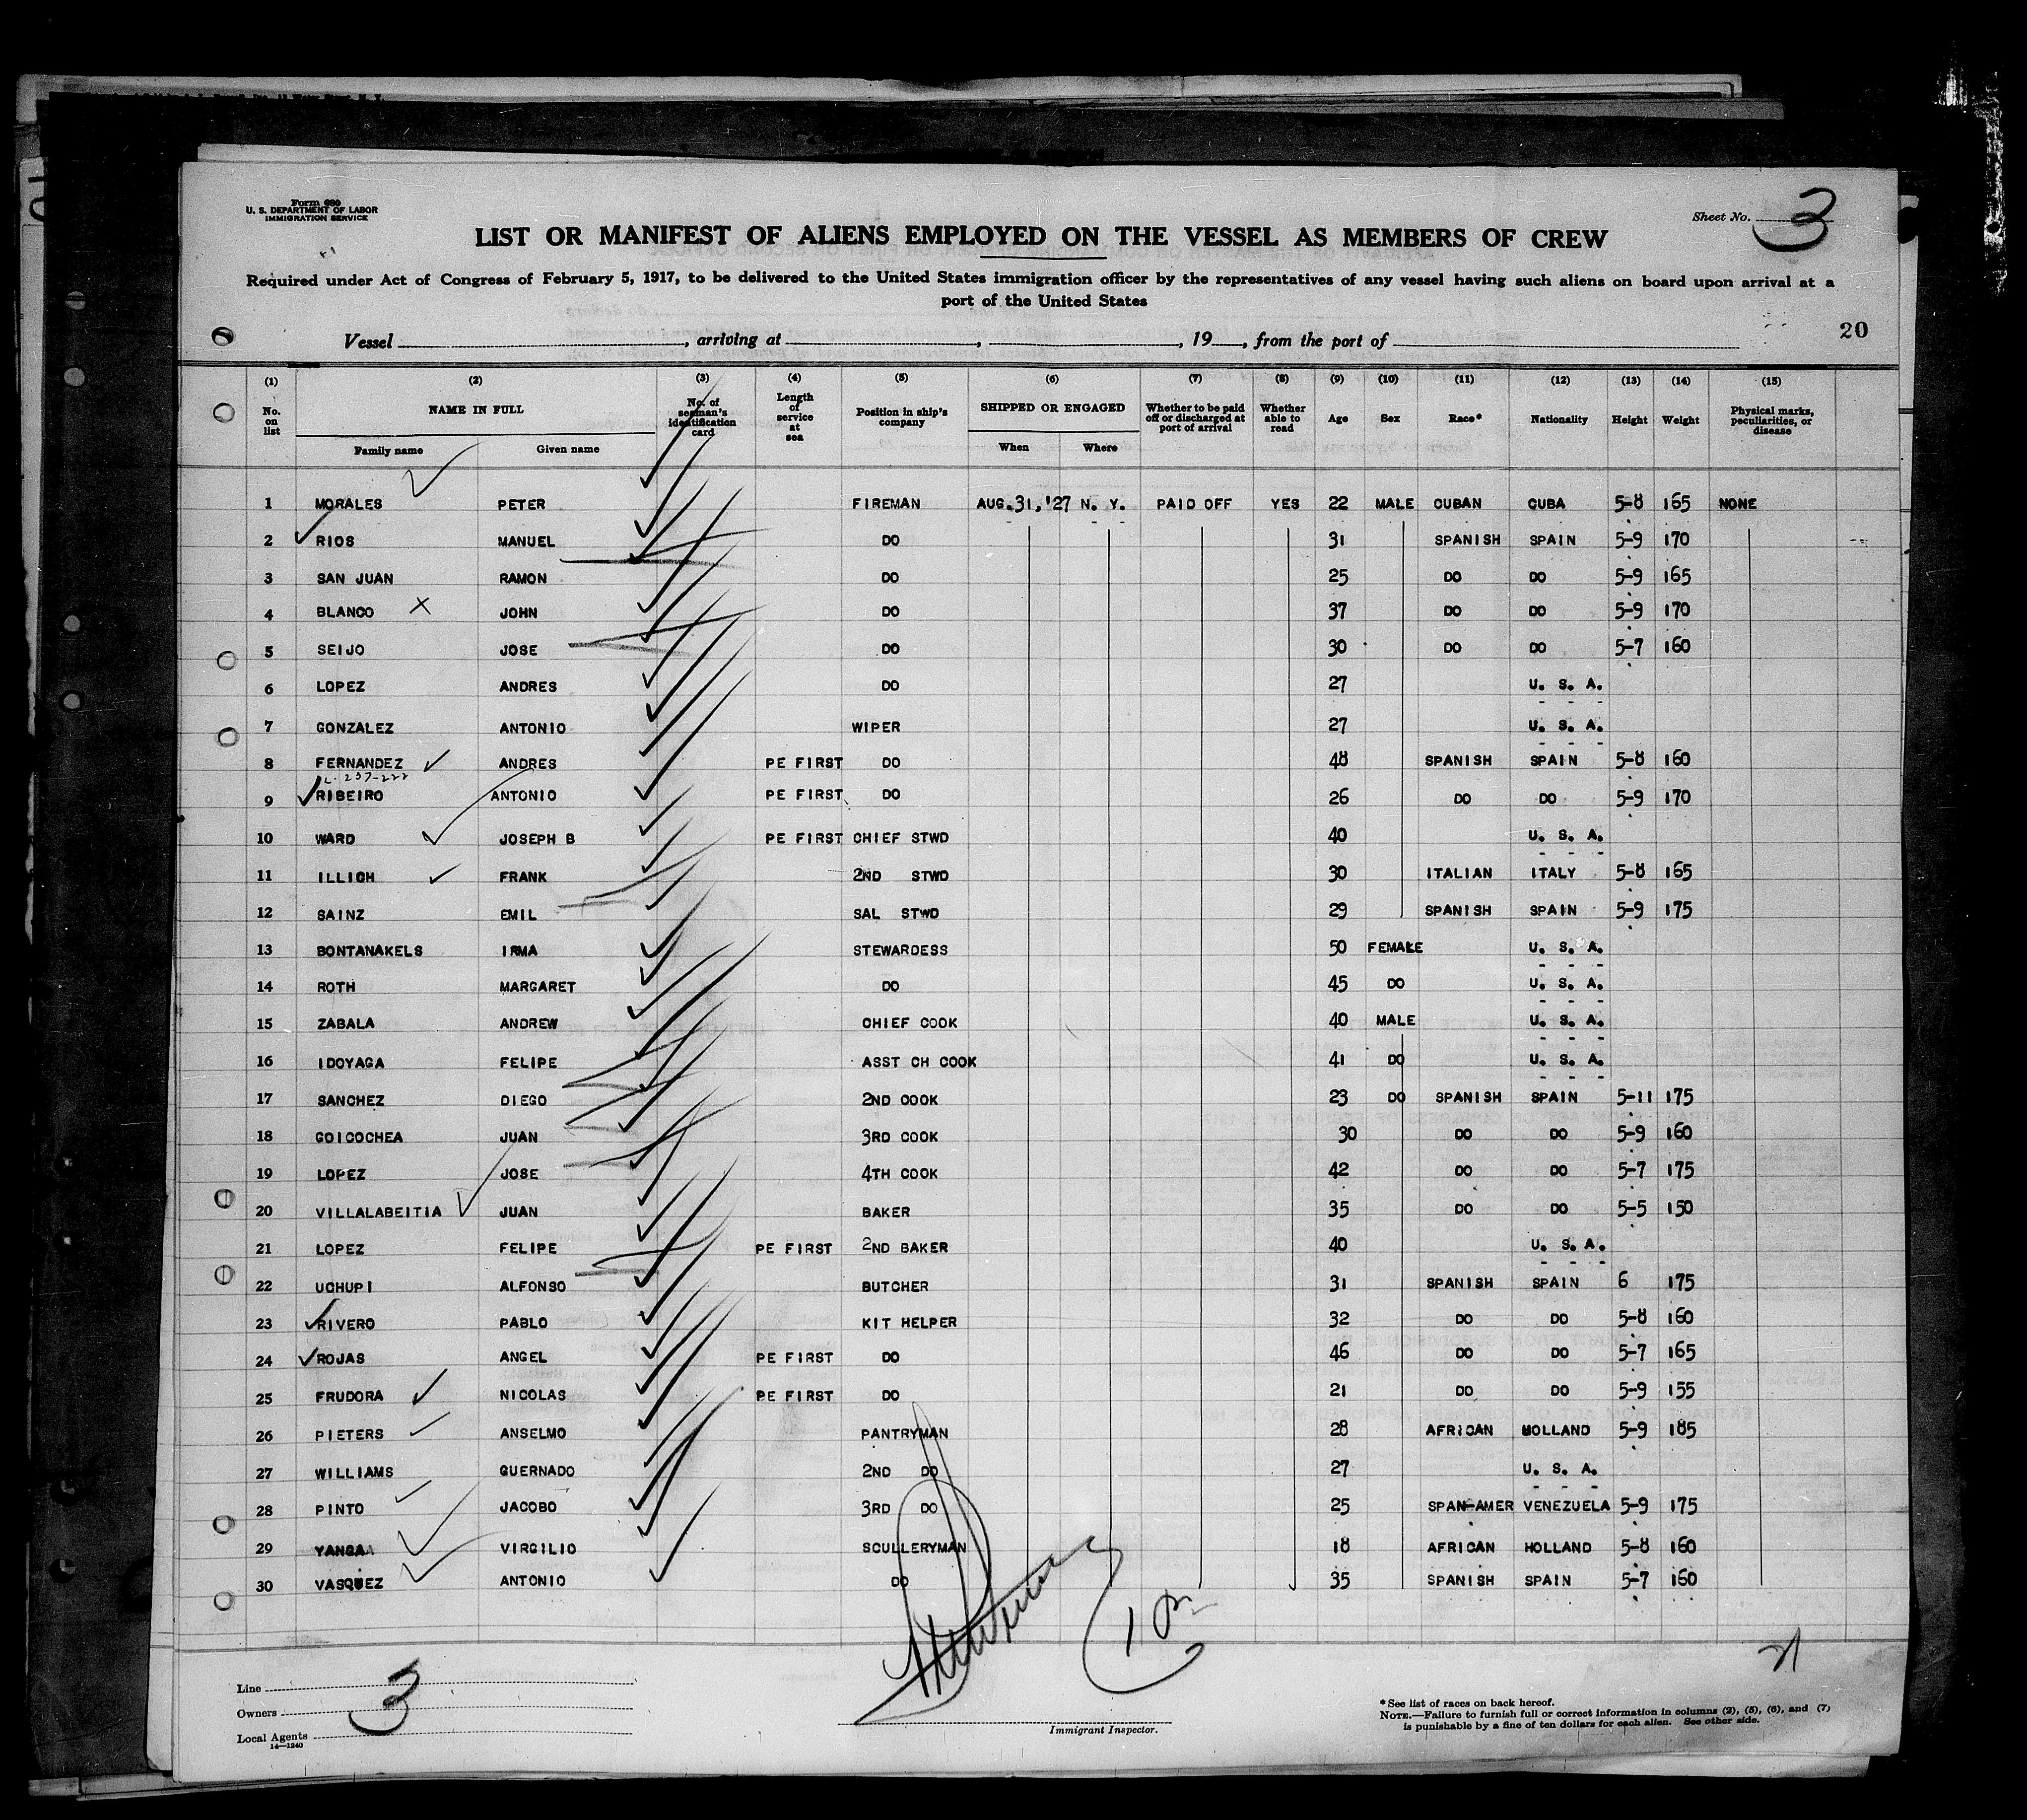 Form 680
U. S. DEPARTMENT OF LABOR
IMMIGRATION SERVICE
Sheet No. 3
LIST OR MANIFEST OF ALIENS EMPLOYED ON THE VESSEL AS MEMBERS OF CREW
Required under Act of Congress of February 5, 1917, to be delivered to the United States immigration officer by the representatives of any vessel having such aliens on board upon arrival at a
port of the United States
20
Vessel , arriving at , , 19 , from the port of
(1) (2) (3) (4) (5) (6) (7) (8) (9) (10) (11) (12) (13) (14) (15)
No. on list NAME IN FULL No. of seaman's identification card Length of service at sea Position in ship's company SHIPPED OR ENGAGED Whether to be paid off or discharged at port of arrival Whether able to read Age Sex Race* Nationality Height Weight Physical marks, peculiarities, or disease
Family name Given name When Where
1 MORALES PETER FIREMAN AUG. 31, '27 N. Y. PAID OFF YES 22 MALE CUBAN CUBA 5-8 165 NONE
2 RIOS MANUEL DO 31 SPANISH SPAIN 5-9 170
3 SAN JUAN RAMON DO 25 DO DO 5-9 165
4 BLANCO X JOHN DO 37 DO DO 5-9 170
5 SEIJO JOSE DO 30 DO DO 5-7 160
6 LOPEZ ANDRES DO 27 U. S. A.
7 GONZALEZ ANTONIO WIPER 27 U. S. A.
8 FERNANDEZ ANDRES PE FIRST DO 48 SPANISH SPAIN 5-8 160
9 RIBEIRO ANTONIO PE FIRST DO 26 DO DO 5-9 170
10 WARD JOSEPH B PE FIRST CHIEF STWD 40 U. S. A.
11 ILLICH FRANK 2ND STWD 30 ITALIAN ITALY 5-8 165
12 SAINZ EMIL SAL STWD 29 SPANISH SPAIN 5-9 175
13 BONTANAKELS IRMA STEWARDESS 50 FEMALE U. S. A.
14 ROTH MARGARET DO 45 DO U. S. A.
15 ZABALA ANDREW CHIEF COOK 40 MALE U. S. A.
16 IDOYAGA FELIPE ASST CH COOK 41 DO U. S. A.
17 SANCHEZ DIEGO 2ND COOK 23 DO SPANISH SPAIN 5-11 175
18 GOICOCHEA JUAN 3RD COOK 30 DO DO 5-9 160
19 LOPEZ JOSE 4TH COOK 42 DO DO 5-7 175
20 VILLALABEITIA JUAN BAKER 35 DO DO 5-5 150
21 LOPEZ FELIPE PE FIRST 2ND BAKER 40 U. S. A.
22 UCHUPI ALFONSO BUTCHER 31 SPANISH SPAIN 6 175
23 RIVERO PABLO KIT HELPER 32 DO DO 5-8 160
24 ROJAS ANGEL PE FIRST DO 46 DO DO 5-7 165
25 FRUDORA NICOLAS PE FIRST DO 21 DO DO 5-9 155
26 PIETERS ANSELMO PANTRYMAN 28 AFRICAN HOLLAND 5-9 185
27 WILLIAMS GUERNADO 2ND DO 27 U. S. A.
28 PINTO JACOBO 3RD DO 25 SPAN-AMER VENEZUELA 5-9 175
29 VIRGILIO SCULLERYMAN 18 AFRICAN HOLLAND 5-8 160
30 VASQUEZ ANTONIO DO 35 SPANISH SPAIN 5-7 160
Line
Owners
Local Agents
3
14—1240
Immigrant Inspector.
*See list of races on back hereof.
NOTE.—Failure to furnish full or correct information in columns (2), (5), (6), and (7)
is punishable by a fine of ten dollars for each alien. See other side.